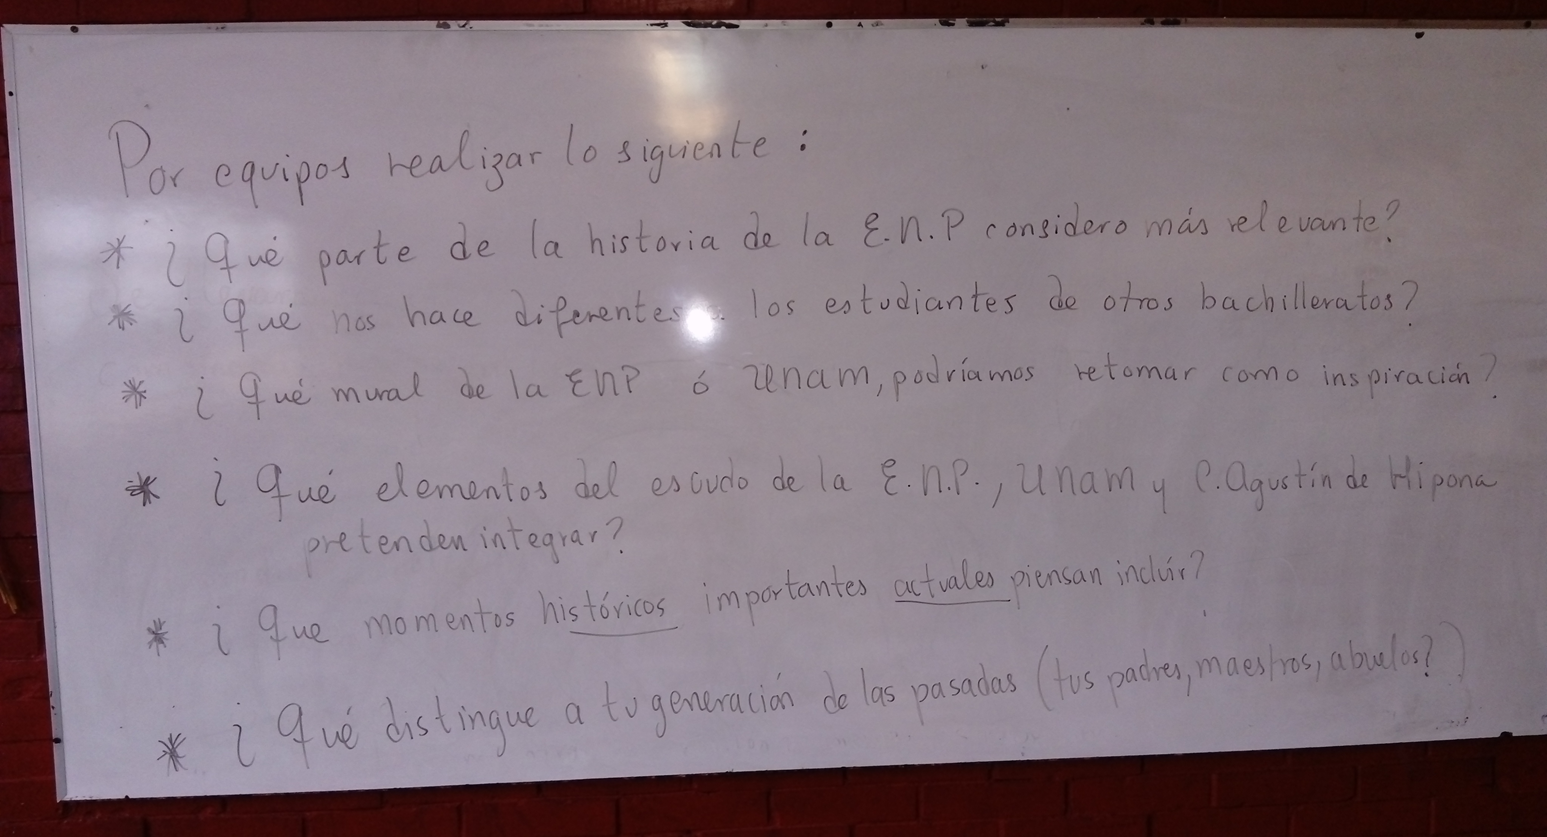 Por equipos realizar lo siguiente:
* ¿Qué parte de la historia de la E.N.P considero más relevante?
* ¿Qué nos hace diferentes los estudiantes de otros bachilleratos?
* ¿Qué mural de la ENP ó UNAM, podríamos retomar como inspiración?
* ¿Qué elementos del escudo de la E.N.P., UNAM y C. Agustín de Hipona
pretenden integrar?
* ¿Que momentos históricos importantes actuales piensan incluír?
* ¿Qué distingue a tu generación de las pasadas (tus padres, maestros, abuelos?)